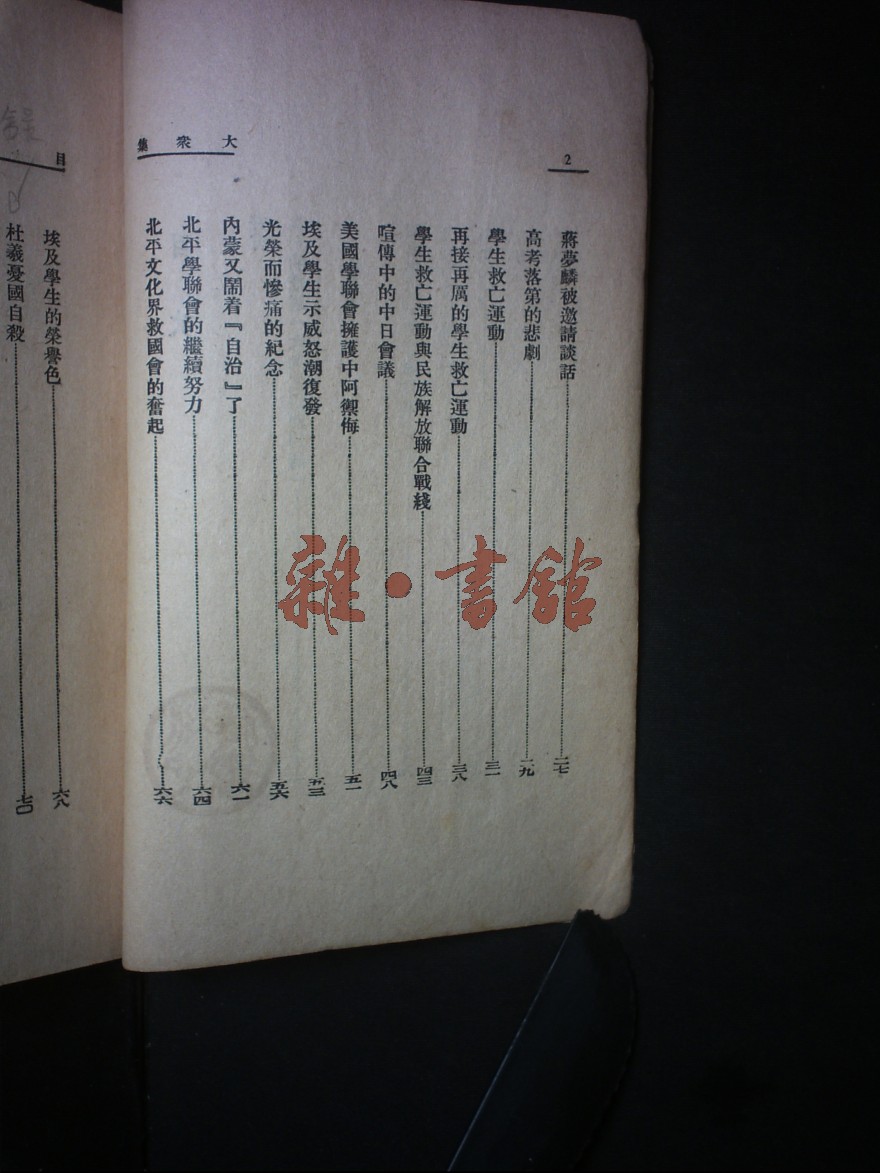 2
大衆集
蔣夢麟被邀請談話 二七
高考落第的悲劇 二九
學生救亡運動 三一
再接再厲的學生救亡運動 三八
學生救亡運動與民族解放聯合戰綫 四三
喧傳中的中日會議 四八
美國學聯會擁護中阿禦侮 五一
埃及學生示威怒潮復發 五三
光榮而慘痛的紀念 五六
內蒙又鬧着『自治』了 六一
北平學聯會的繼續努力 六四
北平文化界救國會的奮起 六六
目
埃及學生的榮譽色 六八
杜羲憂國自殺 七〇
雜·書館